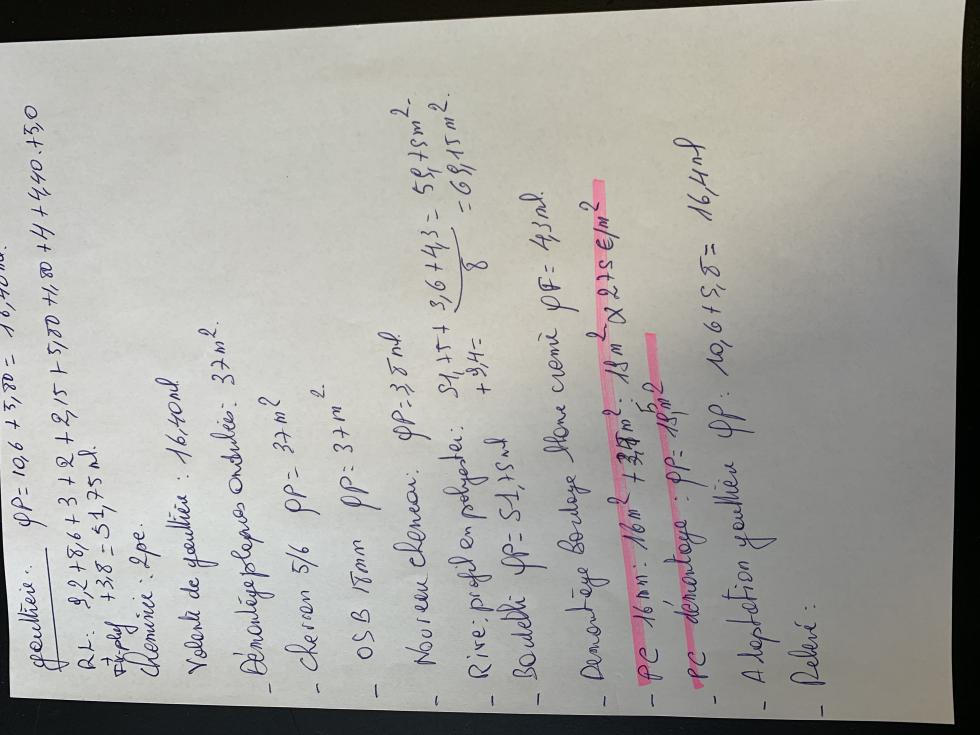 gouttière : QP = 10,6 + 5,80 = 16,40 ml.
RL : 9,2 + 8,6 + 3 + 2 + 2,15 + 5,80 + 1,80 + 4 + 4,40 + 3,0
+ 3,8 = 51,75 ml.
Cheminée : 2pc.
Volante de gouttière : 16,40 ml
- Démontage plaques ondulées : 37 m².
- Cheron 5/6 QP = 37 m²
- OSB 18mm QP = 37 m²
- Nouveau Cheneau : QP = 3,8 ml.
- Rive : profil en polyester : 51,75 + 3,6 + 4,3 = 59,75 m².
+ 9,4 = 8 = 69,15 m².
- Bardelli QP = 51,75 ml
- Demontage Boulage Hone creme QP = 4,3 ml.
- PC 16 mm : 16 m² + m² : 19 m² x 275 €/m²
- PC démontage : QP = 19,5 m²
- Adaptation gouttière QP : 10,6 + 5,8 = 16,4 ml
- Relevé :